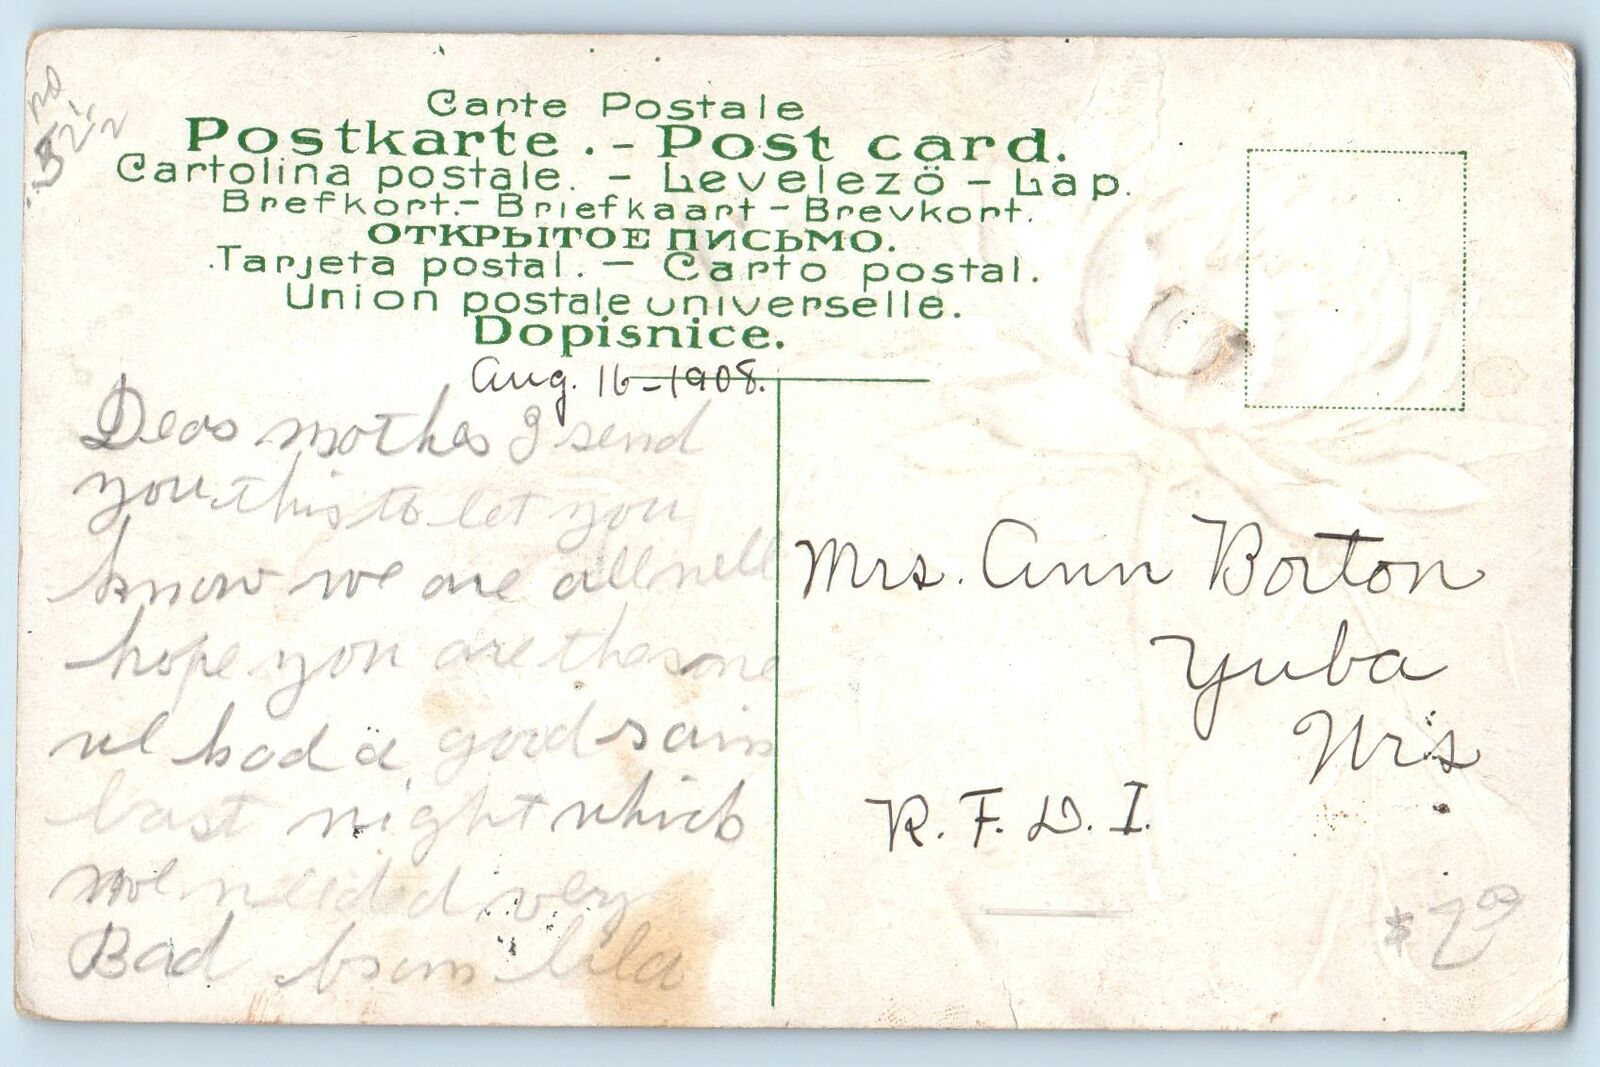 Carte Postale
Postkarte . - Post card.
Cartolina postale. - Levelezö - Lap.
Brefkort.- Briefkaart - Brevkort.
ОТКРЫТОЕ ПИСЬМО.
Tarjeta postal. - Carto postal.
Union postale universelle.
Dopisnice.
Aug. 16-1908.
Dear mother I send
you this to let you
know we are all well
hope you are the same
we had a good rain
last night which
we needed very
Bad from lila
Mrs. Ann Borton
Yuba
Wis
R. F. D. I.
$2.00